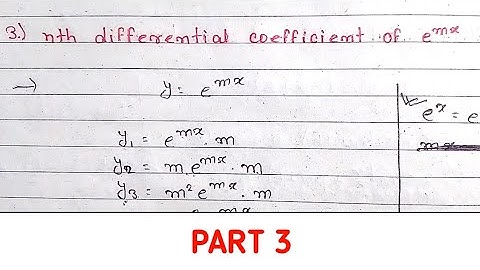 3.) nth differential coefficient of e^{mx}
→ y = e^{mx}
e^x = e
y₁ = e^{mx} . m
y₂ = m e^{mx} . m
y₃ = m² e^{mx} . m
PART 3